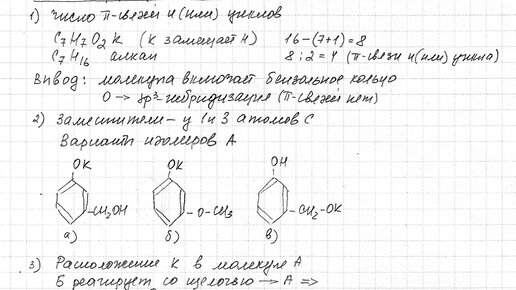 1) число π-связей и(или) циклов
C₇H₇O₂K (K замещает H) 16-(7+1)=8
C₇H₁₆ алкан 8:2=4 (π-связи и(или) цикла)
Вывод: молекула включает бензольное кольцо
O → sp³-гибридизация (π-связей нет)
2) Заместители - у 1 и 3 атомов C
Варианты изомеров A
OK OK OH
CH₂OH O-CH₃ CH₂-OK
а) б) в)
3) Расположение K в молекуле A
Б реагирует со щелочью → A ⇒